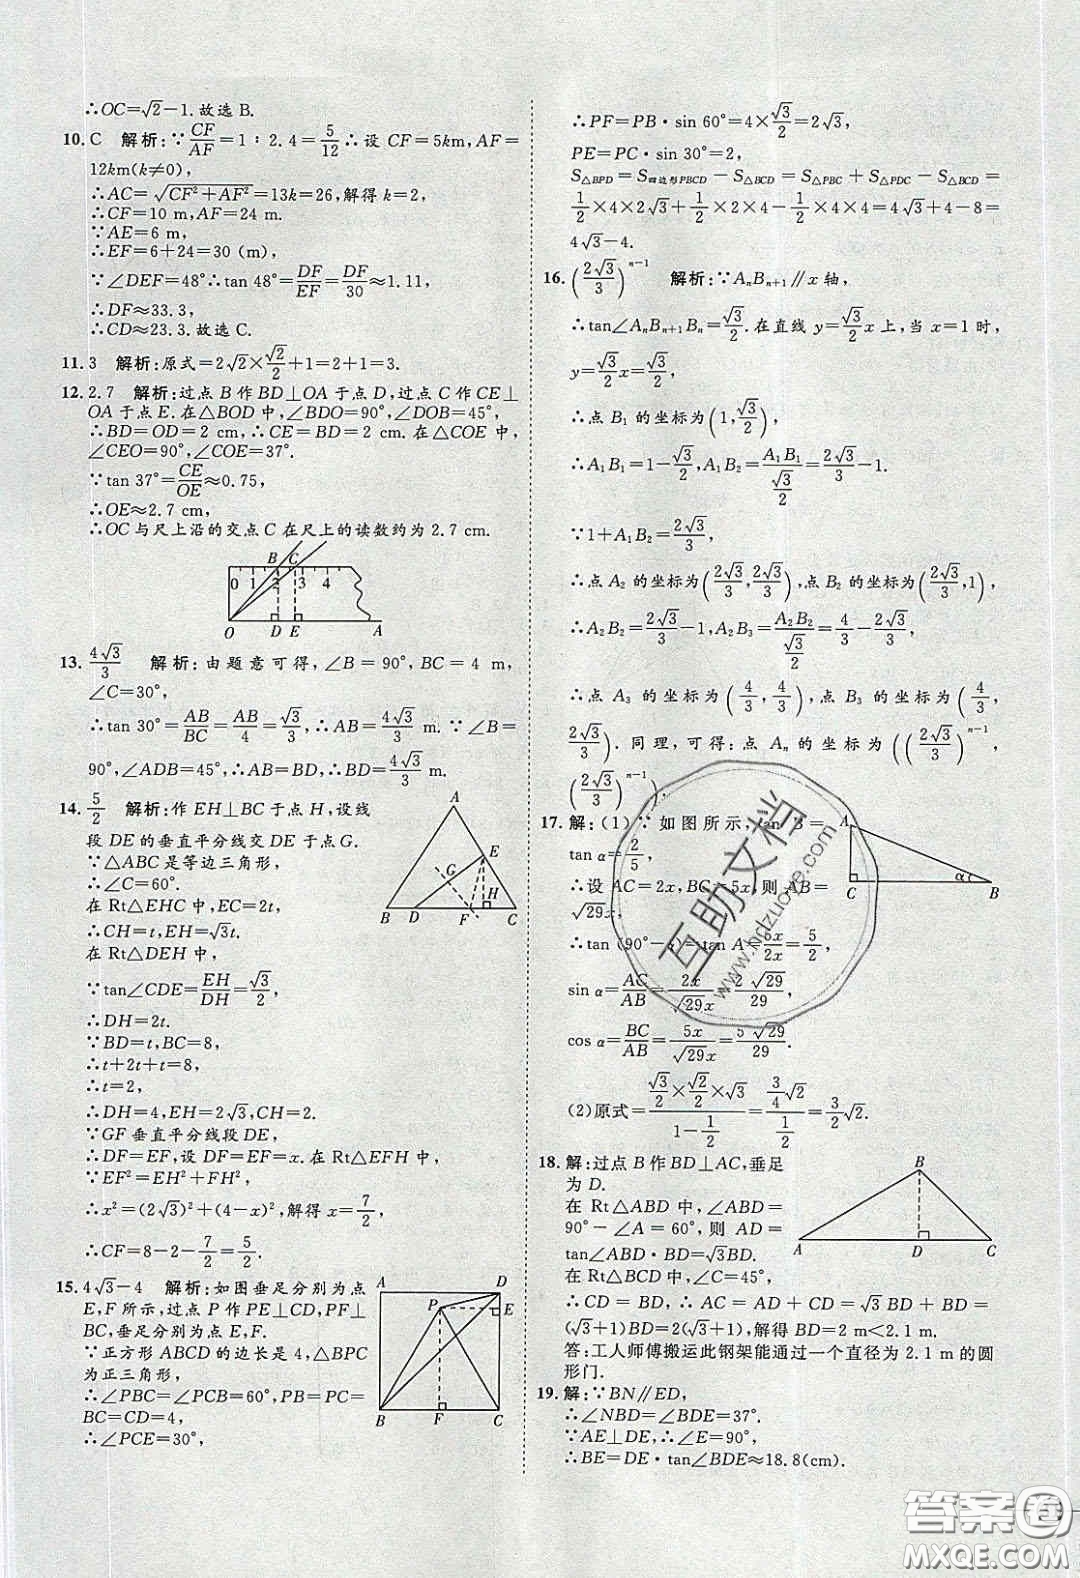 ∴OC=√2-1.故选 B.
10. C 解析:∵CF/AF=1∶2.4=5/12 ∴设 CF=5km,AF=
12km(k≠0),
∴AC=√(CF²+AF²)=13k=26,解得 k=2,
∴CF=10 m,AF=24 m.
∵AE=6 m,
∴EF=6+24=30 (m),
∵∠DEF=48°∴tan 48°=DF/EF=DF/30≈1.11,
∴DF≈33.3,
∴CD≈23.3.故选 C.
11. 3 解析:原式=2√2×√2/2+1=2+1=3.
12. 2.7 解析:过点 B 作 BD⊥OA 于点 D,过点 C 作 CE⊥
OA 于点 E.在△BOD 中,∠BDO=90°,∠DOB=45°,
∴BD=OD=2 cm,∴CE=BD=2 cm.在△COE 中,
∠CEO=90°,∠COE=37°.
∵tan 37°=CE/OE≈0.75,
∴OE≈2.7 cm,
∴OC 与尺上沿的交点 C 在尺上的读数约为 2.7 cm.
B C
0 1 2 3 4
O D E A
13. 4√3/3 解析:由题意可得,∠B=90°,BC=4 m,
∠C=30°,
∴tan 30°=AB/BC=AB/4=√3/3,∴AB=4√3/3 m.∵∠B=
90°,∠ADB=45°,∴AB=BD,∴BD=4√3/3 m.
14. 5/2 解析:作 EH⊥BC 于点 H,设线
段 DE 的垂直平分线交 DE 于点 G.
∵△ABC 是等边三角形,
∴∠C=60°.
在 Rt△EHC 中,EC=2t,
∴CH=t,EH=√3t.
在 Rt△DEH 中,
∵tan∠CDE=EH/DH=√3/2,
∴DH=2t.
∵BD=t,BC=8,
∴t+2t+t=8,
∴t=2,
∴DH=4,EH=2√3,CH=2.
∵GF 垂直平分线段 DE,
∴DF=EF,设 DF=EF=x.在 Rt△EFH 中,
∵EF²=EH²+FH²,
∴x²=(2√3)²+(4-x)²,解得 x=7/2,
∴CF=8-2-7/2=5/2.
A
G E
H
B D F C
15. 4√3-4 解析:如图垂足分别为点
E,F 所示,过点 P 作 PE⊥CD,PF⊥
BC,垂足分别为点 E,F.
∵正方形 ABCD 的边长是 4,△BPC
为正三角形,
∴∠PBC=∠PCB=60°,PB=PC=
BC=CD=4,
∴∠PCE=30°,
A D
P E
B F C
∴PF=PB·sin 60°=4×√3/2=2√3,
PE=PC·sin 30°=2,
S△BPD=S四边形PBCD-S△BCD=S△PBC+S△PDC-S△BCD=
1/2×4×2√3+1/2×2×4-1/2×4×4=4√3+4-8=
4√3-4.
16. (2√3/3)ⁿ⁻¹ 解析:∵AₙBₙ₊₁∥x 轴,
∴tan∠AₙBₙ₊₁Bₙ=√3/2.在直线 y=√3/2x 上,当 x=1 时,
y=√3/2x=√3/2,
∴点 B₁ 的坐标为(1,√3/2),
∴A₁B₁=1-√3/2,A₁B₂=A₁B₁/(√3/2)=2√3/3-1.
∵1+A₁B₂=2√3/3,
∴点 A₂ 的坐标为(2√3/3,2√3/3),点 B₂ 的坐标为(2√3/3,1),
∴A₂B₂=2√3/3-1,A₂B₃=A₂B₂/(√3/2)=4/3-2√3/3,
∴点 A₃ 的坐标为(4/3,4/3),点 B₃ 的坐标为(4/3,
2√3/3).同理,可得:点 Aₙ 的坐标为((2√3/3)ⁿ⁻¹,
(2√3/3)ⁿ⁻¹).
17. 解:(1)∵如图所示,tan B=
tan α=2/5,
∴设 AC=2x,BC=5x,则 AB=
√29x,
∴tan (90°-α)=tan A=5x/2x=5/2,
sin α=AC/AB=2x/√29x=2√29/29,
cos α=BC/AB=5x/√29x=5√29/29.
(2)原式=(√3/2×√2/2×√3)/(1-1/2)=(3/4√2)/(1/2)=3/2√2.
A
C α B
18. 解:过点 B 作 BD⊥AC,垂足
为 D.
在 Rt△ABD 中,∠ABD=
90°-∠A=60°,则 AD=
tan∠ABD·BD=√3BD.
在 Rt△BCD 中,∠C=45°,
∴CD=BD,∴AC=AD+CD=√3BD+BD=
(√3+1)BD=2(√3+1),解得 BD=2 m<2.1 m.
答:工人师傅搬运此钢架能通过一个直径为 2.1 m 的圆
形门.
B
A D C
19. 解:∵BN∥ED,
∴∠NBD=∠BDE=37°.
∵AE⊥DE,∴∠E=90°,
∴BE=DE·tan∠BDE≈18.8(cm).
互助文档
www.hdzuoye.com
答案圈
MXQE.COM